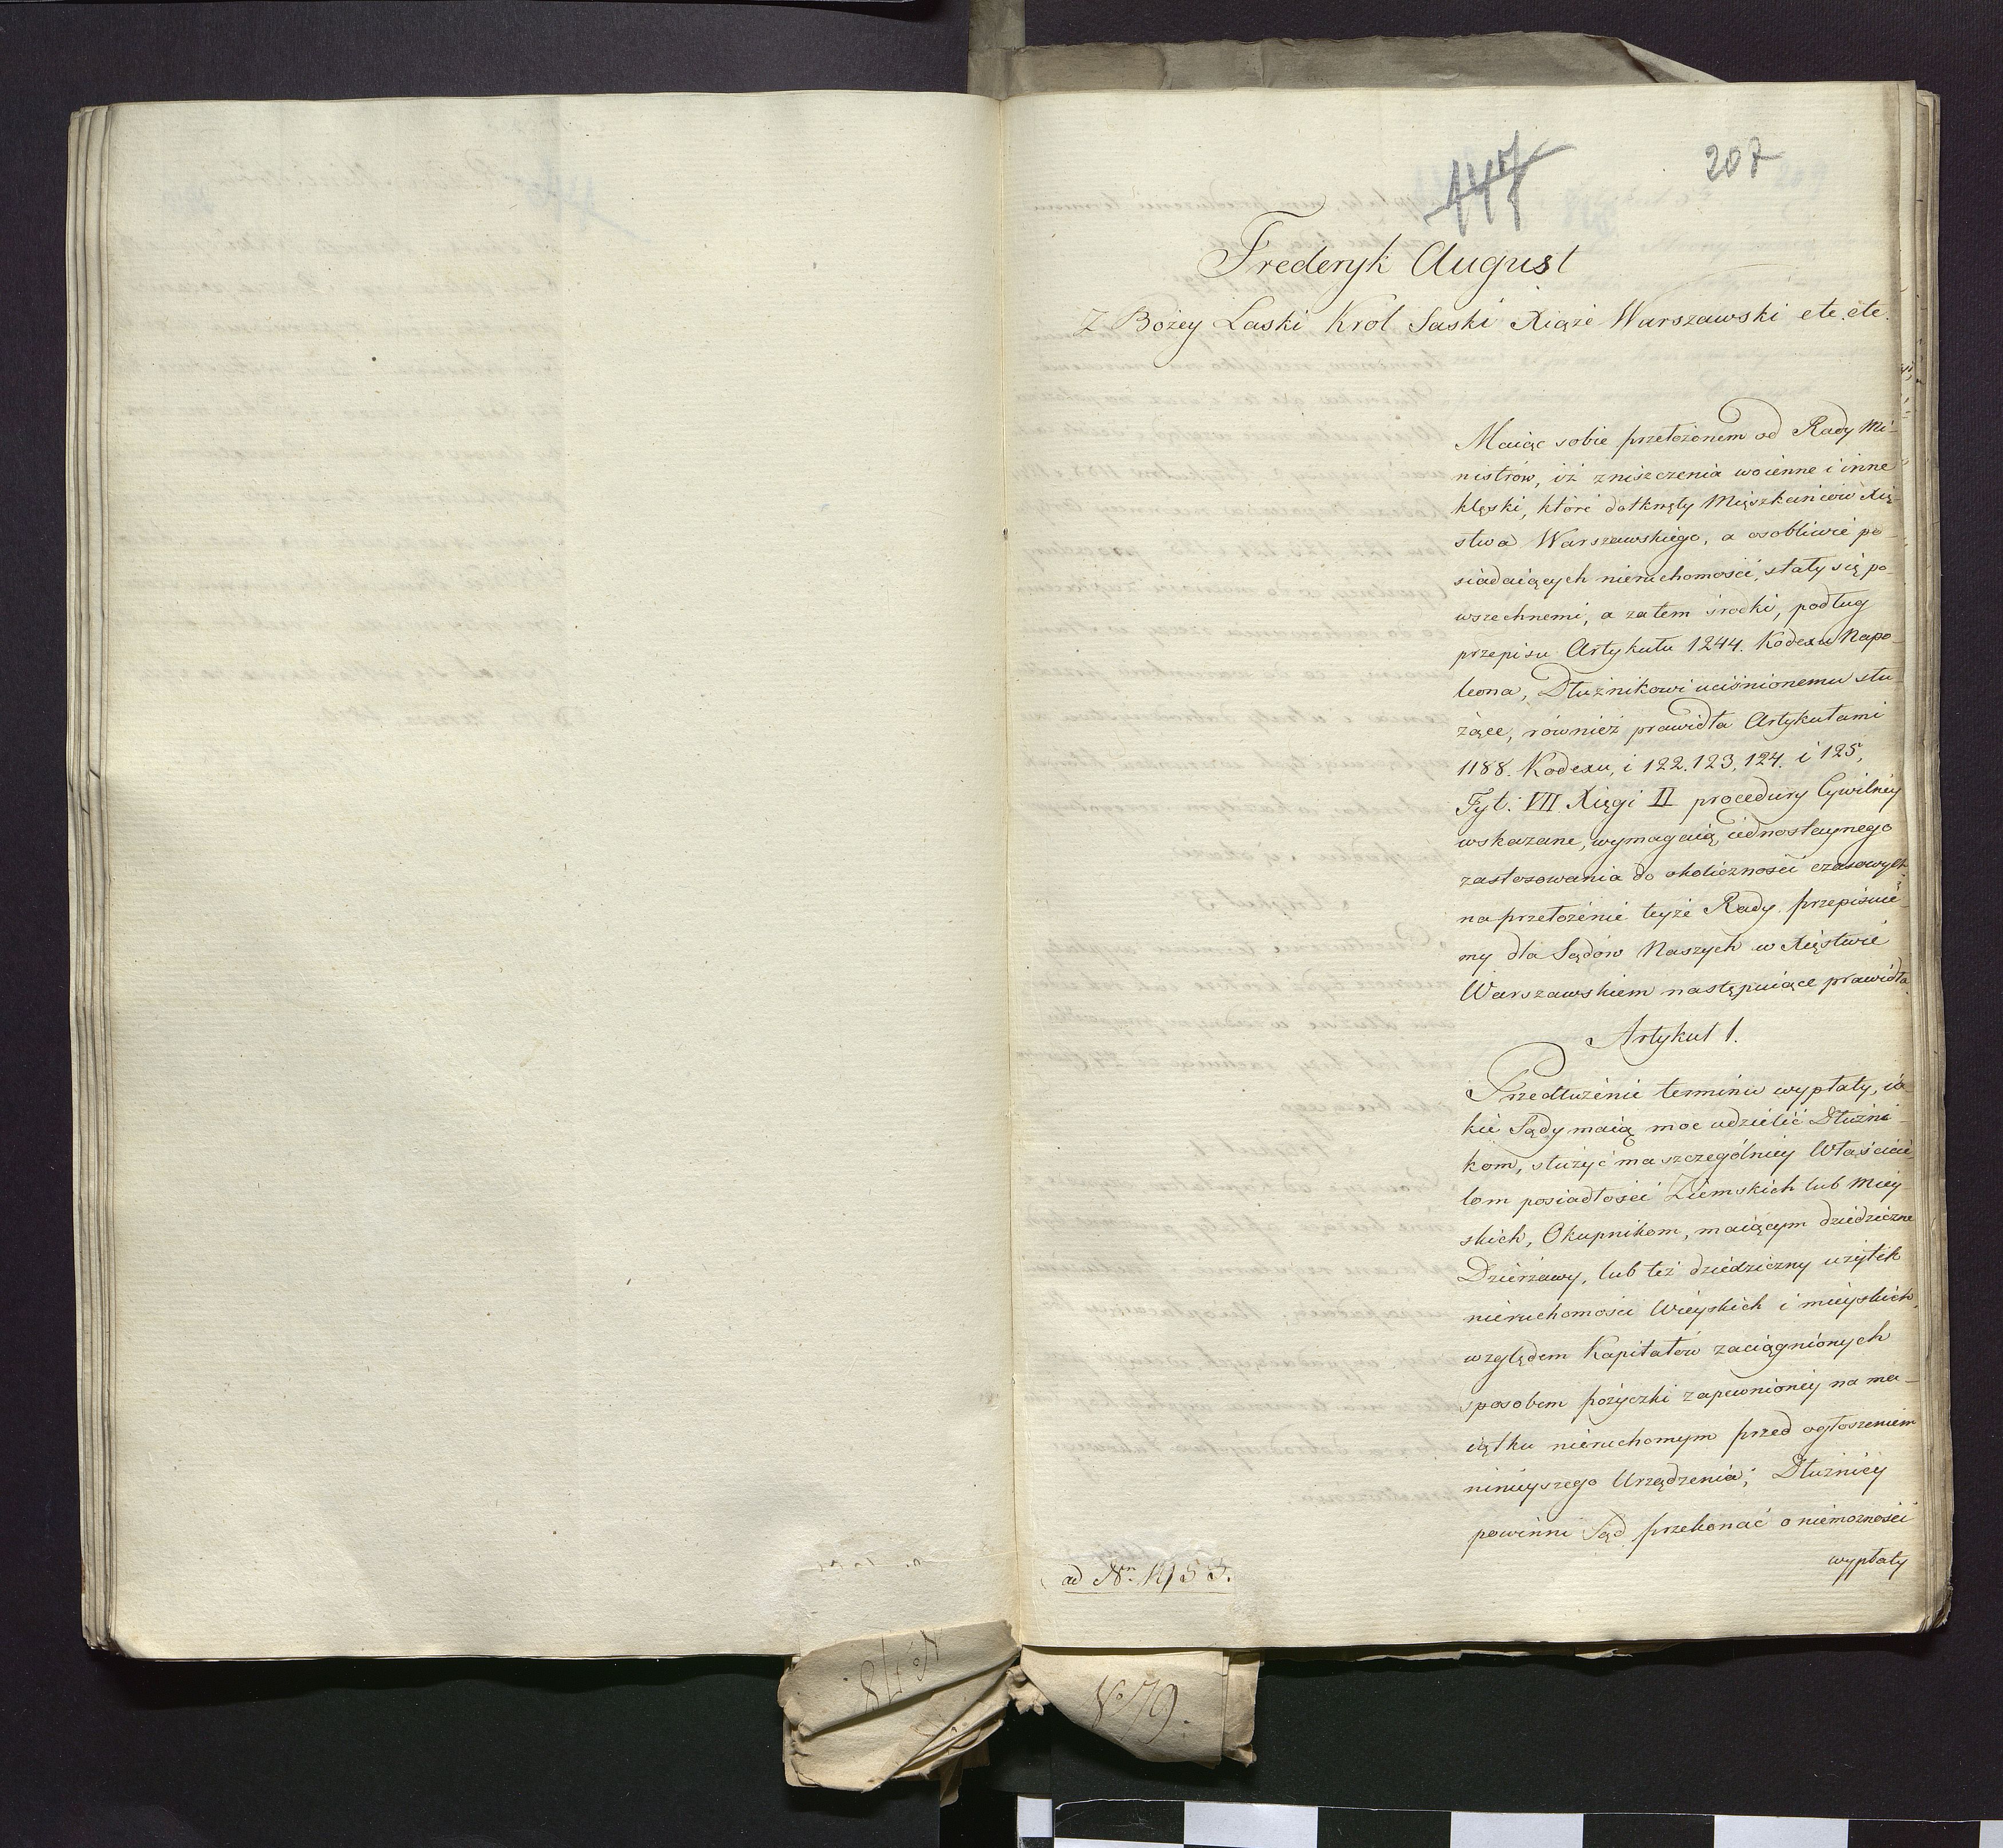 447
207
Frederyk August
Z Bożey Łaski Krol Saski Xiąże Warszawski etc. etc.
Maiąc sobie przełożonem od Rady Mi-
nistrów, iż zniszczenia woienne i inne
klęski, które dotknęły Mięszkańców Xię-
stwa Warszawskiego, a osobliwie po-
siadaiących nieruchomości, stały się po-
wszechnemi, a zatem środki, podług
przepisu Artykułu 1244. Kodexu Napo-
leona, Dłużnikowi uciśnionemu słu-
żące, również prawidła Artykułami
1188. Kodexu, i 122. 123. 124. i 125,
Tyt. VII. Xięgi II procedury Cywilnéy
wskazane, wymagaią iednostaynego
zastosowania do okoliczności czasowych,
na przełożenie teyże Rady, przepisuie-
my dla Sądów Naszych w Xięstwie
Warszawskiem następuiące prawidła.
Artykuł 1.
Przedłużenie terminu wypłaty, ia-
kie Sądy maią moc udzielić Dłużni-
kom, służyć ma szczególniey Właścicie-
lom posiadłości Ziemskich lub Miey-
skich, Okupnikom, maiącym dziedziczne
Dzierżawy, lub też dziedziczny użytek
nieruchomości Wieyskich i mieyskich,
względem Kapitałów zaciągnionych
sposobem pożyczki zapewnioney na ma-
iątku nieruchomym przed ogłoszeniem
ninieyszego Urządzenia; Dłużnicy
powinni Sąd przekonać o niemożności
wypłaty
ad Nr. 1953.
No 78.
No 79.